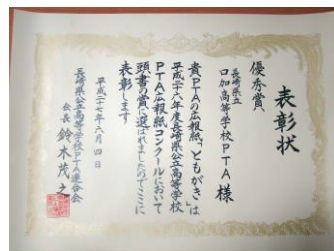 表彰状
優秀賞
長崎県立
口加高等学校PTA 様
貴PTAの広報紙「ともがき」は
平成二十六年度長崎県公立高等学校
PTA広報紙コンクールにおいて
頭書の賞に選ばれましたのでここに
表彰します
平成二十七年六月四日
長崎県公立高等学校PTA連合会
会長 鈴木茂之